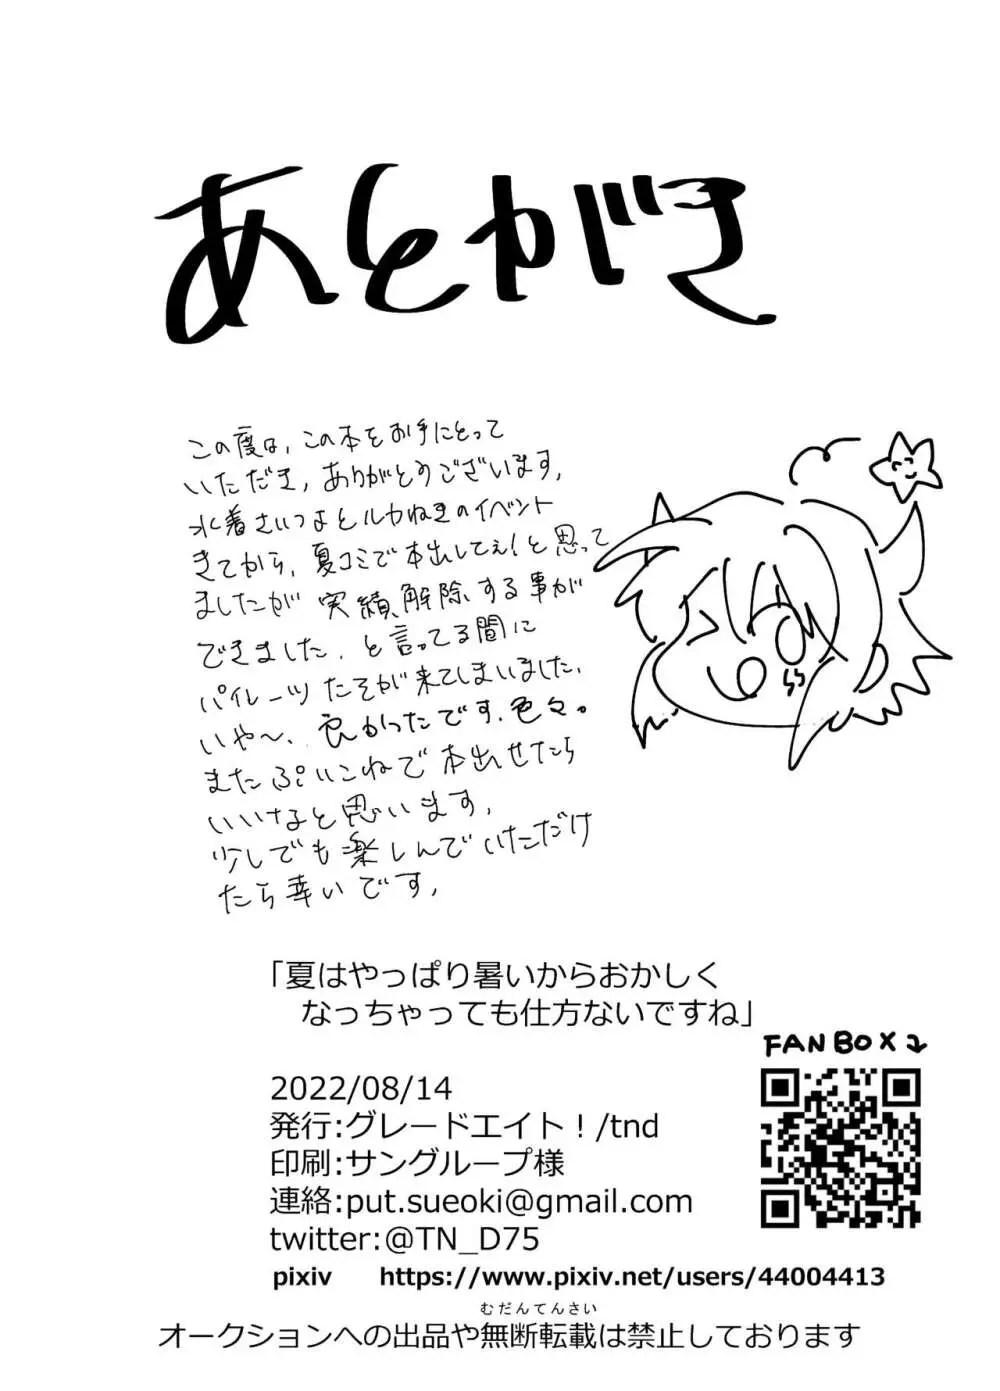 あとがき
この度は、この本をお手にとって
いただき、ありがとうございます。
水着さいつよとルカねきのイベント
きてから、夏コミで本出してぇ!と思って
ましたが実績解除する事が
できました。と言ってる間に
パイレーツたそが来てしまいました。
いや〜、良かったです、色々。
またぷいこねで本出せたら
いいなと思います。
少しでも楽しんでいただけ
たら幸いです。
「夏はやっぱり暑いからおかしく
なっちゃっても仕方ないですね」
FANBOX
2022/08/14
発行:グレードエイト!/tnd
印刷:サングループ様
連絡:put.sueoki@gmail.com
twitter:@TN_D75
pixiv https://www.pixiv.net/users/44004413
むだんてんさい
オークションへの出品や無断転載は禁止しております